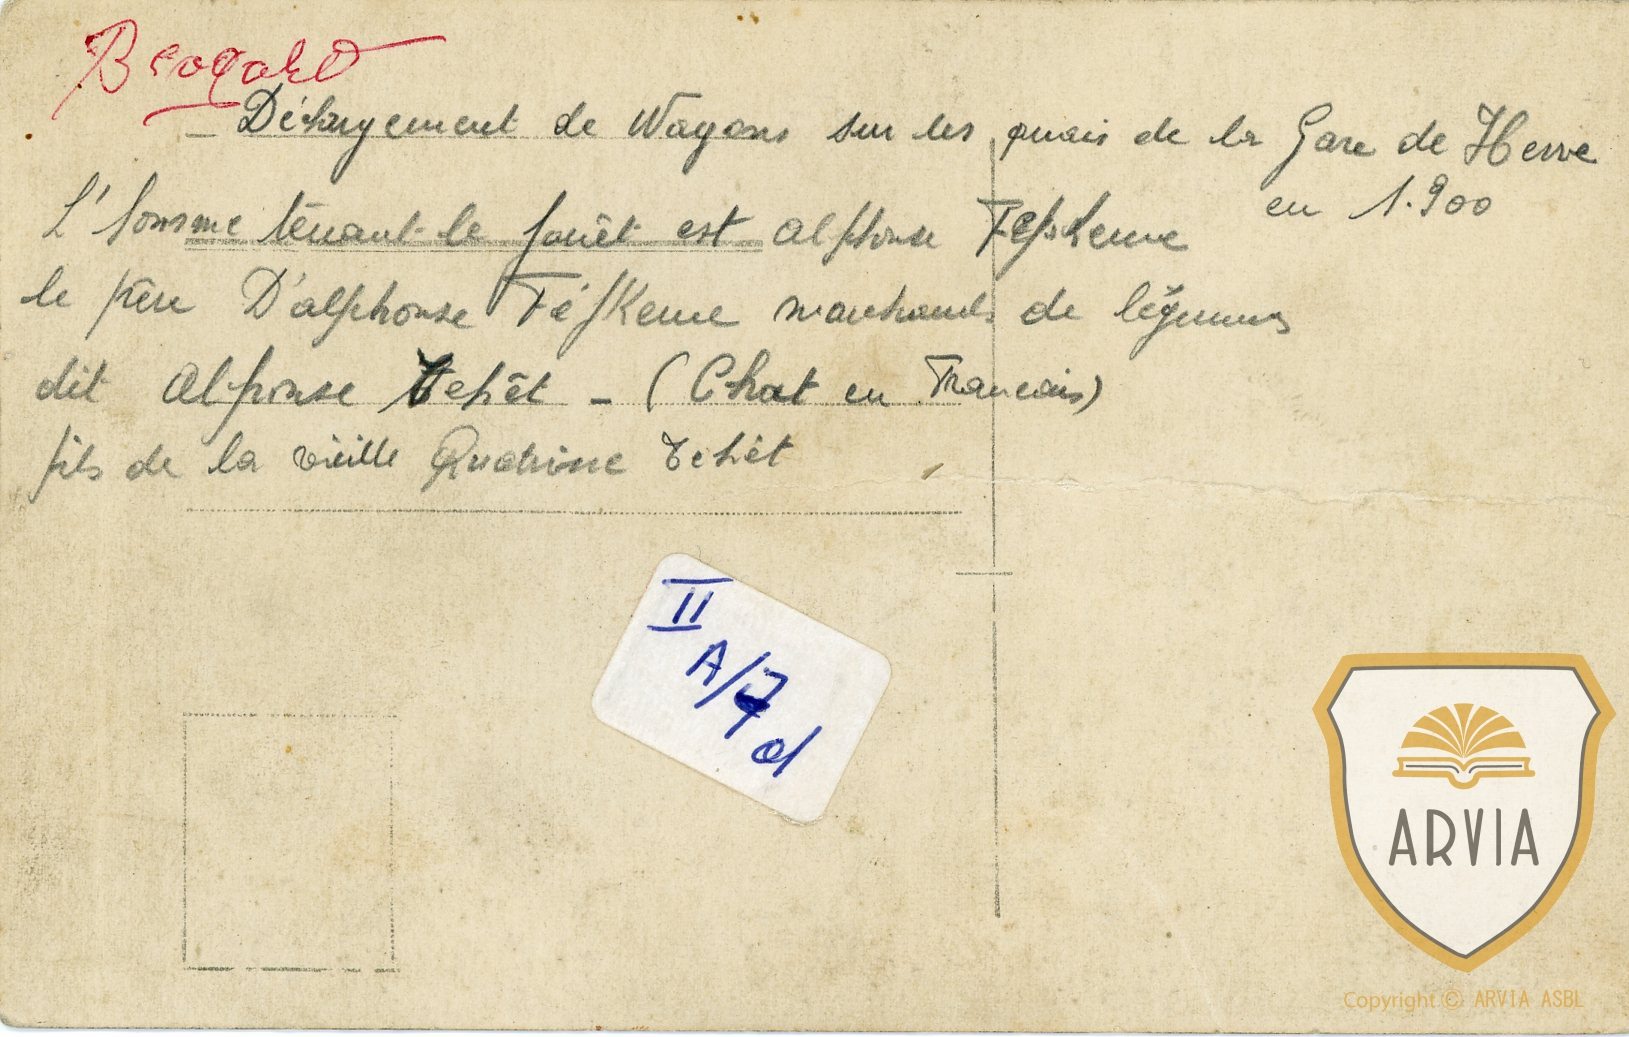 Déchargement de Wagons sur les quais de la Gare de Herve
en 1.900
L'homme tenant le fouêt est alphonse
le père D'alphonse marchand de légumes
dit alphonse Tchêt - (Chat en Francais)
fils de la vieille Tchêt
II
A/7
d
ARVIA
Copyright © ARVIA ASBL